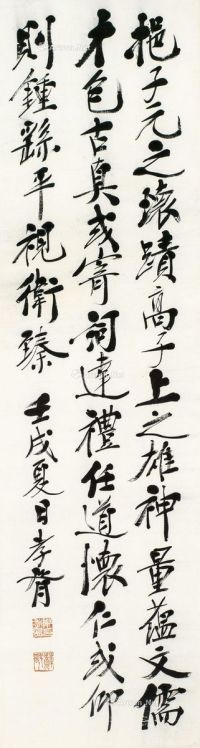 挹子元之瓌蹟高子上之雄神量蘊文儒
才包古真或寄詞達禮任道懷仁或仰
則鍾繇平視衛臻 壬戌夏日孝胥